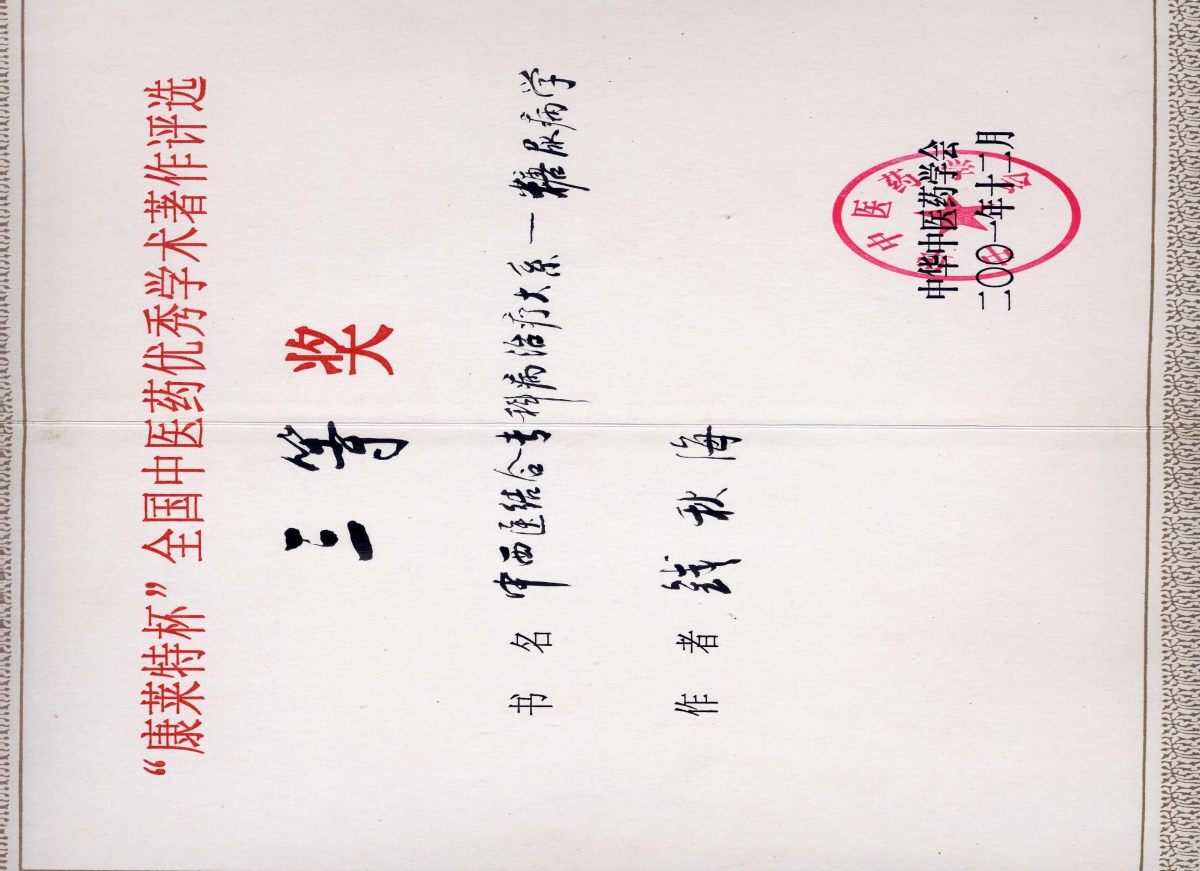 “康莱特杯”全国中医药优秀学术著作评选
三等奖
书名 中西医结合专科病治疗大系—糖尿病学
作者 钱秋海
中华中医药学会
二〇〇一年十二月